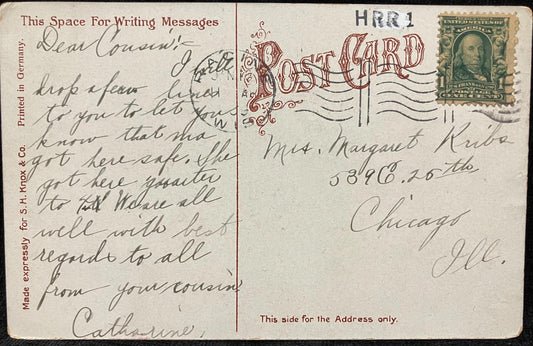 This Space For Writing Messages
HRR 1
POST CARD
Dear Cousin:-
I will
drop a few lines
to you to let you
know that ma
got here safe. She
got here quarter
to We are all
well with best
regards to all
from your cousin
Catharine.
Mrs. Margaret Kribs
539 E. 25th
Chicago
Ill.
This side for the Address only.
Made expressly for S. H. Knox & Co. Printed in Germany.
WIS